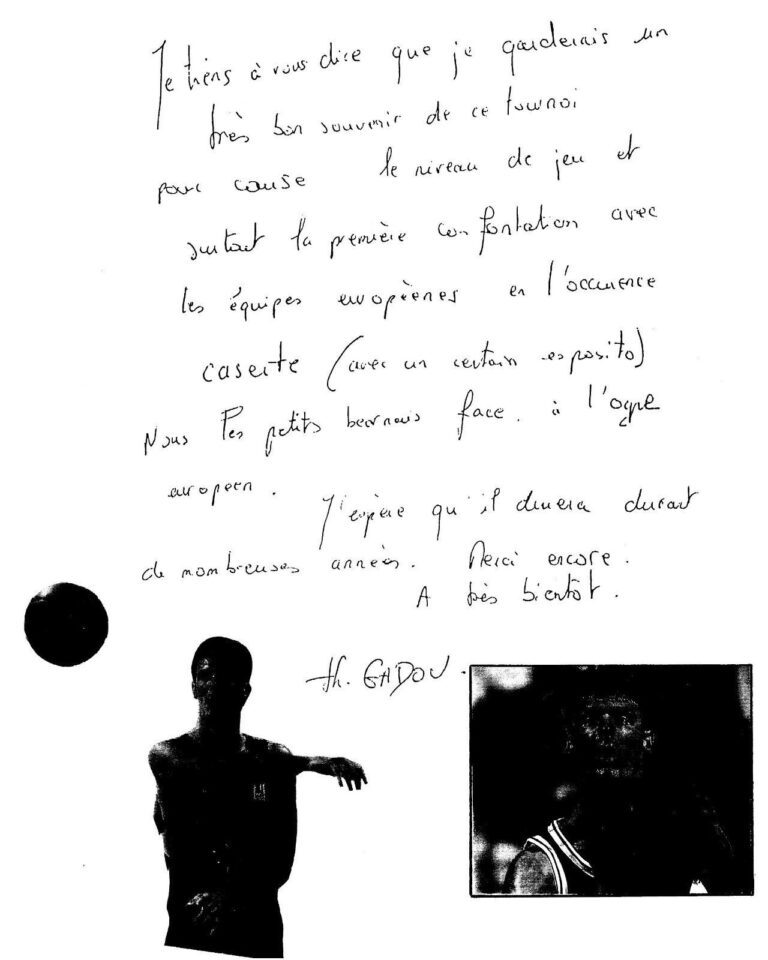 Je tiens à vous dire que je garderais un
très bon souvenir de ce tournoi
pour cause le niveau de jeu et
surtout la première confontation avec
les équipes européenes en l'occurence
caserte (avec un certain esposito)
Nous les petits bearnais face à l'ogre
européen.
J'espère qu'il durera durant
de nombreuses années. Merci encore.
A très bientôt.
th. GADOU.